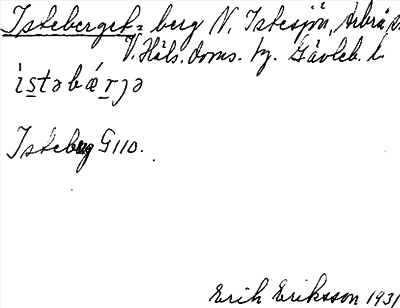 Isteberget = berg N. Istesjön, Arbrå s:n
V. Häls. doms. hg. Gävleb. l.
ìstəbǽrjə
Isteberg G110.
Erik Eriksson 1931